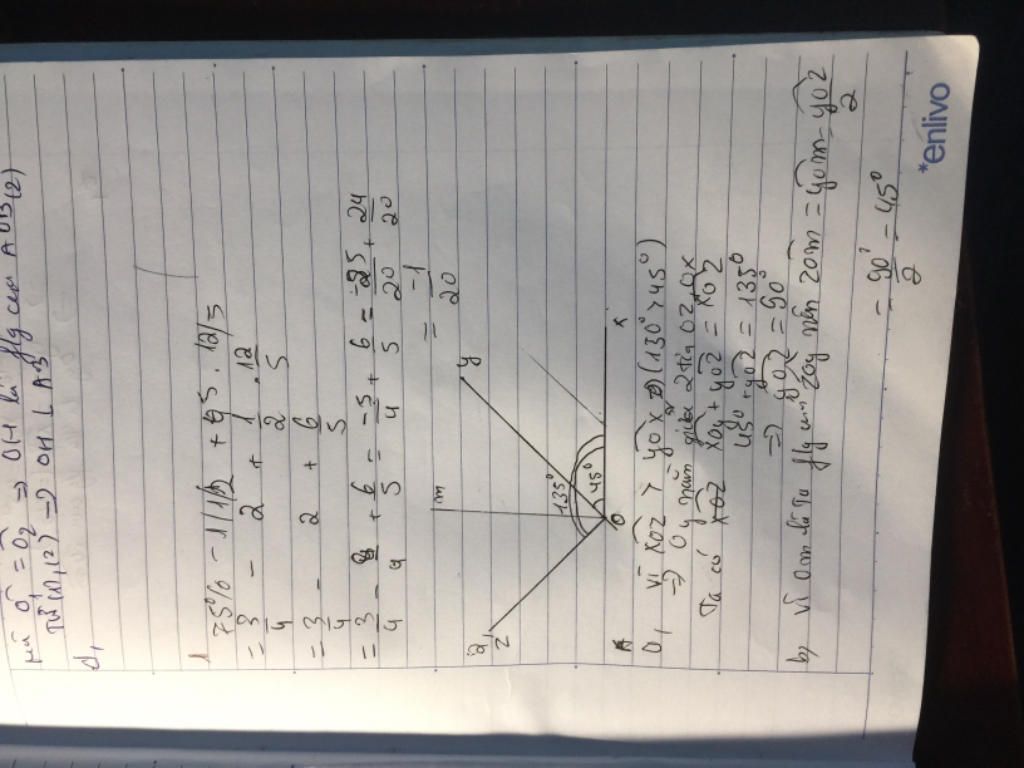 mà Ô1 = Ô2 => OH là
từ (1), (2) => OH ⊥ AB
d,
75% - 1 1/2 + 0,5 . 12/5
= 3/4 - 2 + 1/2 . 12/5
= 3/4 - 2 + 6/5
= 3/4 - 8/4 + 6/5 = -5/4 + 6/5 = -25/20 + 24/20
= -1/20
2,
z
m
y
135°
45°
O
x
a, vì xOz > yOx (130° > 45°)
=> Oy nằm giữa 2 tia Oz, Ox
Ta có xOy + yOz = xOz
45° + yOz = 135°
=> yOz = 90°
b, vì Om là tia zOy nên zOm = yOm = yOz/2
= 90°/2 = 45°
*enlivo